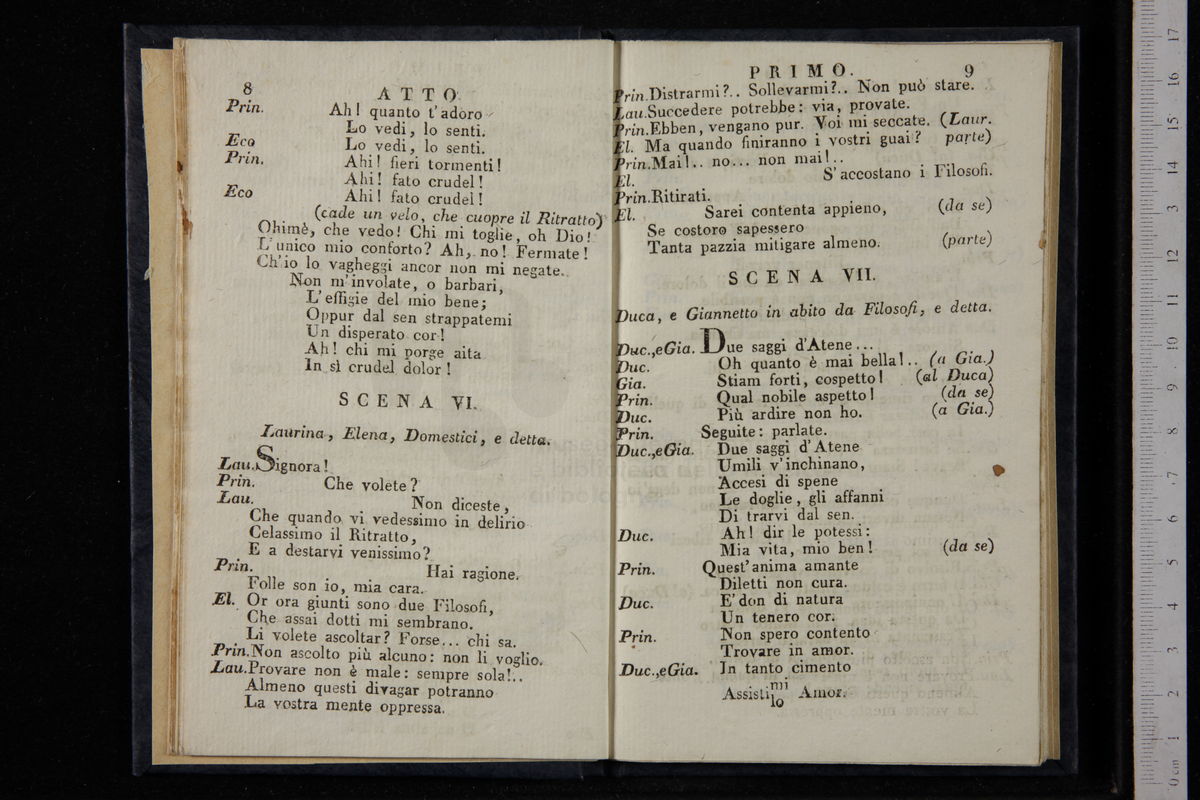 8
ATTO
Prin. Ah! quanto t'adoro
Lo vedi, lo senti.
Eco Lo vedi, lo senti.
Prin. Ahi! fieri tormenti!
Ahi! fato crudel!
Eco Ahi! fato crudel!
(cade un velo, che cuopre il Ritratto)
Ohimè, che vedo! Chi mi toglie, oh Dio!
L'unico mio conforto? Ah, no! Fermate!
Ch'io lo vagheggi ancor non mi negate.
Non m'involate, o barbari,
L'effigie del mio bene;
Oppur dal sen strappatemi
Un disperato cor!
Ah! chi mi porge aita
In sì crudel dolor!
SCENA VI.
Laurina, Elena, Domestici, e detta.
Lau. Signora!
Prin. Che volete?
Lau. Non diceste,
Che quando vi vedessimo in delirio
Celassimo il Ritratto,
E a destarvi venissimo?
Prin. Hai ragione.
Folle son io, mia cara.
El. Or ora giunti sono due Filosofi,
Che assai dotti mi sembrano.
Li volete ascoltar? Forse... chi sa.
Prin. Non ascolto più alcuno: non li voglio.
Lau. Provare non è male: sempre sola!..
Almeno questi divagar potranno
La vostra mente oppressa.
PRIMO.
9
Prin. Distrarmi?.. Sollevarmi?.. Non può stare.
Lau. Succedere potrebbe: via, provate.
Prin. Ebben, vengano pur. Voi mi seccate. (Laur.
El. Ma quando finiranno i vostri guai? parte)
Prin. Mai!.. no... non mai!..
El. S'accostano i Filosofi.
Prin. Ritirati.
El. Sarei contenta appieno, (da se)
Se costoro sapessero
Tanta pazzia mitigare almeno. (parte)
SCENA VII.
Duca, e Giannetto in abito da Filosofi, e detta.
Duc., e Gia. Due saggi d'Atene...
Duc. Oh quanto è mai bella!.. (a Gia.)
Gia. Stiam forti, cospetto! (al Duca)
Prin. Qual nobile aspetto! (da se)
Duc. Più ardire non ho. (a Gia.)
Prin. Seguite: parlate.
Duc., e Gia. Due saggi d'Atene
Umili v'inchinano,
Accesi di spene
Le doglie, gli affanni
Di trarvi dal sen.
Duc. Ah! dir le potessi:
Mia vita, mio ben! (da se)
Prin. Quest'anima amante
Diletti non cura.
Duc. E' don di natura
Un tenero cor.
Prin. Non spero contento
Trovare in amor.
Duc., e Gia. In tanto cimento
Assisti mi lo Amor.